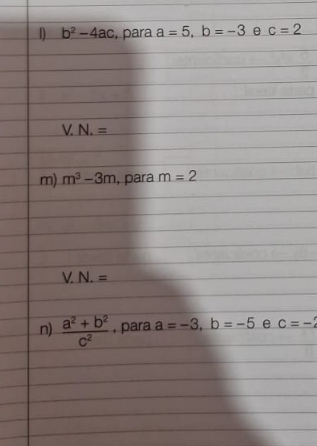 l) b² – 4ac, para a = 5, b = –3 e c = 2
V. N. =
m) m³ – 3m, para m = 2
V. N. =
n) a² + b² / c² , para a = –3, b = –5 e c = –2